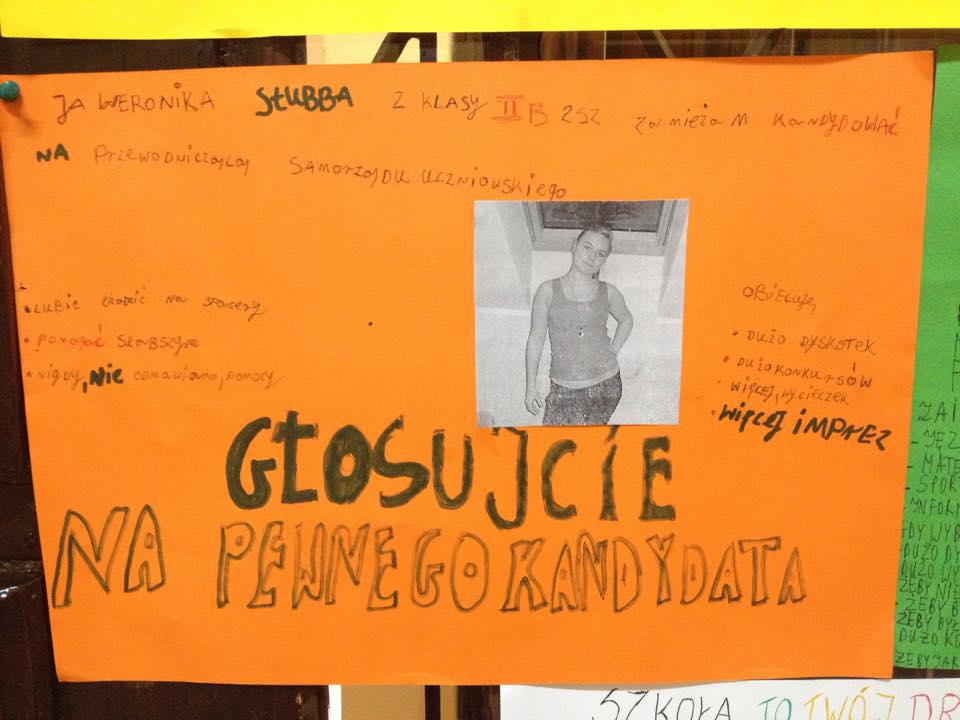 JA WERONIKA SŁUBBA Z KLASY II B ZSZ ZAMIEŻAM KANDYDOWAĆ
NA PRZEWODNICZĄCĄ SAMORZĄDU UCZNIOWSKIEGO
• LUBIĘ CHODZIĆ NA SPACERY
• POMAGAĆ SŁABSZYM
• NIGDY, NIE ODMAWIAM, POMOCY
OBIECUJĘ,
• DUŻO DYSKOTEK
• DUŻO KONKURSÓW
• WIĘCEJ, WYCIECZEK
• WIĘCEJ IMPREZ
GŁOSUJCIE
NA PEWNEGO KANDYDATA
ZAI
- JĘZ
- MATE
- SPOR
- INFORM
GDY WYB
- DUŻO DY
- DUŻO WY
ŻEBY NIE
- ŻEBY B
ŻEBY BYŁ
DUŻO K
ŻEBY JAK
SZKOŁA TO TWÓJ DR